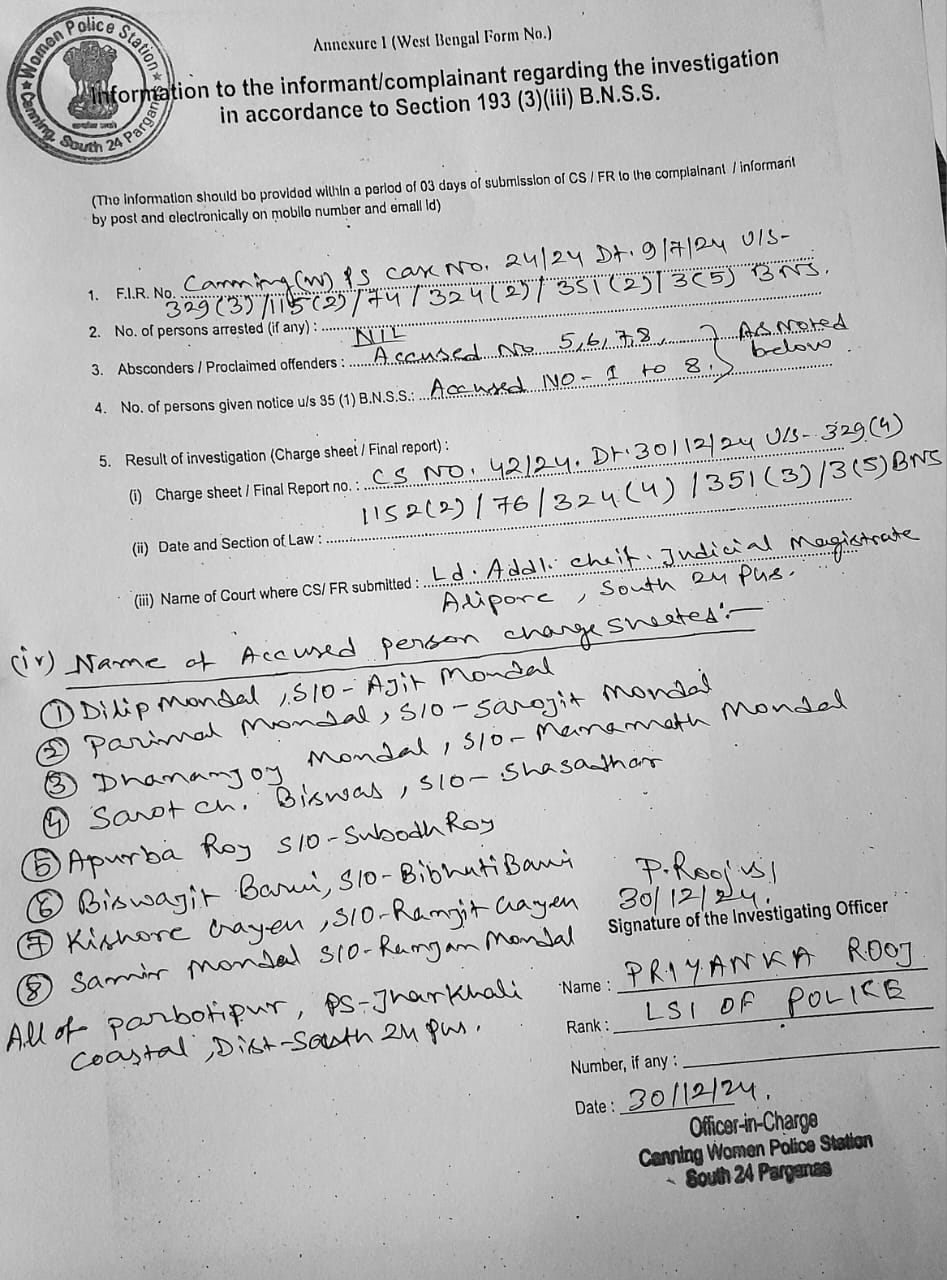 Women Police Station
Canning, South 24 Parganas
Annexure I (West Bengal Form No.)
Information to the informant/complainant regarding the investigation
in accordance to Section 193 (3)(iii) B.N.S.S.
(The information should be provided within a period of 03 days of submission of CS / FR to the complainant / informant
by post and electronically on mobile number and email Id)
1. F.I.R. No. Canning (W) PS case No. 24/24 Dt. 9/7/24 U/S-
329(3)/115(2)/74/324(2)/351(2)/3(5) BNS.
2. No. of persons arrested (if any) : NIL
3. Absconders / Proclaimed offenders : Accused No 5,6,7,8, } As Noted
4. No. of persons given notice u/s 35 (1) B.N.S.S.: Accused NO - 1 to 8. } below.
5. Result of investigation (Charge sheet / Final report) :
(i) Charge sheet / Final Report no. : CS NO. 42/24. Dt. 30/12/24 U/S- 329(4)
1152(2)/76/324(4)/351(3)/3(5) BNS
(ii) Date and Section of Law :
(iii) Name of Court where CS/ FR submitted : Ld. Addl. cheif. Judicial Magistrate
Alipore, South 24 Pgs.
(iv) Name of Accused person charge sheeted :-
① Dilip Mondal, S/O - Ajit Mondal
② Parimal Mondal, S/O - Sarojit Mondal
③ Dhananjoy Mondal, S/O - Manamath Mondal
④ Sarot ch. Biswas, S/O - Shasadhar
⑤ Apurba Roy S/O - Subodh Roy
⑥ Biswajit S/O - Bibhuti
⑦ Kishore Gayen, S/O - Ramjit Gayen
⑧ Samir Mondal S/O - Mondal
All of Parbotipur, PS - Jharkhali
Coastal, Dist - South 24 Pgs.
P. Rooj
30/12/24.
Signature of the Investigating Officer
Name : PRIYANKA ROOJ
Rank : LSI OF POLICE
Number, if any :
Date : 30/12/24.
Officer-in-Charge
Canning Women Police Station
South 24 Parganas